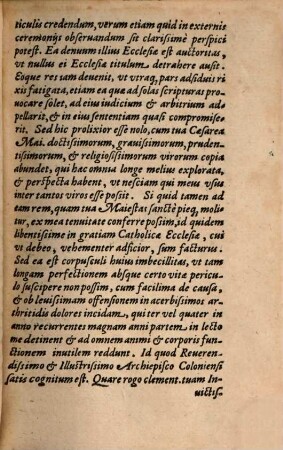 ticulis credendum, verum etiam quid in externis
ceremonijs obseruandum sit clarissimè perspici
potest. Ea denum illius Ecclesiæ est auctoritas,
vt nullus ei Ecclesiæ titulum detrahere ausit.
Eoque res tam deuenit, vt vtraq, pars adsidui ri
xis fatigata, etiam ea quæ ad solas scripturas pro-
uocare solet, ad eius iudicium & arbitrium ad-
pellarit, & in eius sententiam quasi compromise-
rit. Sed hic prolixior esse nolo, cum tua Cæsarea
Mai. doctissimorum, grauissimorum, pruden-
tissimorum, & religiosissimorum virorum copia
abundet, qui hæc omnia longe melius explorata,
& perspecta habent, vt nesciam qui meus vsus
inter tantos viros esse possit. Si quid tamen ad
eam rem, quam tua Maiestas sanctè pieq, molie
tur, ex mea tenuitate conferre possim, id quidem
libentissime in gratiam Catholicæ Ecclesiæ, cui
vt debeo, vehementer adficior, sum facturus.
Sed ea est corpusculi huius imbecillitas, vt tam
longam perfectionem absque certo vitæ pericu
lo suscipere non possim, cum facilima de causa,
& ob leuissimam offensionem in acerbissimos ar-
thritidis dolores incidam, qui ter vel quater in
anno recurrentes magnam anni partem in lecto
me detinent & ad omnem animi & corporis fun-
ctionem inutilem reddunt. Id quod Reueren-
dissimo & Illustrissimo Archiepisco Coloniensi
satis cognitum est. Quare rogo clement. tuam In
uictis-